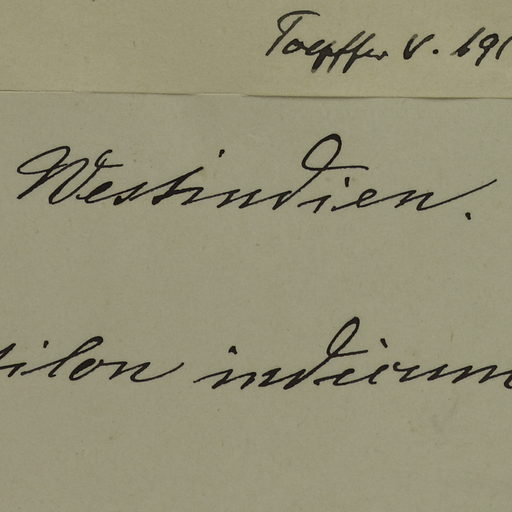 Toepffer V. 691
Westindien.
tilon indicum